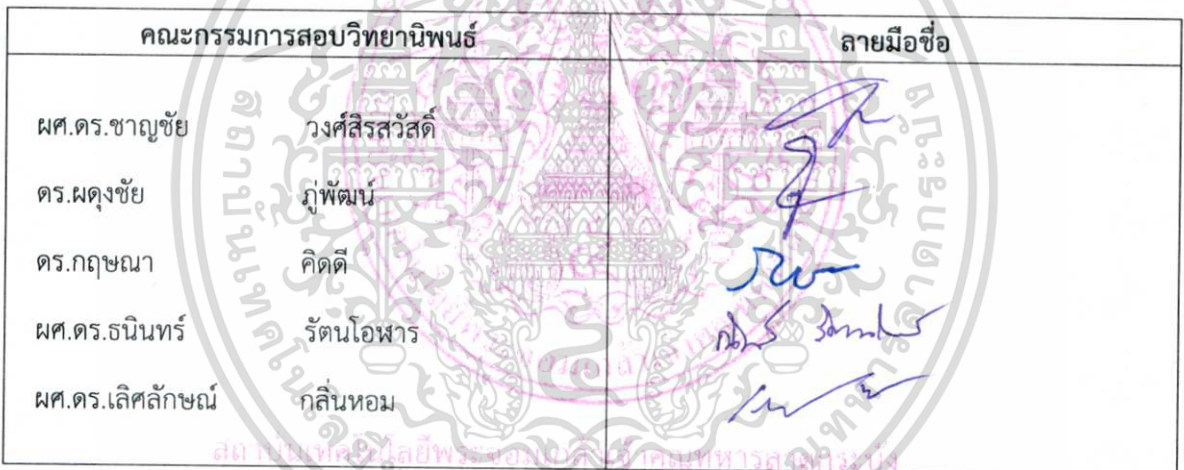 คณะกรรมการสอบวิทยานิพนธ์ ลายมือชื่อ
ผศ.ดร.ชาญชัย วงศ์สิรสวัสดิ์
ดร.ผดุงชัย ภู่พัฒน์
ดร.กฤษณา คิดดี
ผศ.ดร.ธนินทร์ รัตนโอฬาร
ผศ.ดร.เลิศลักษณ์ กลิ่นหอม
สถาบันเทคโนโลยีพระจอมเกล้าเจ้าคุณทหารลาดกระบัง